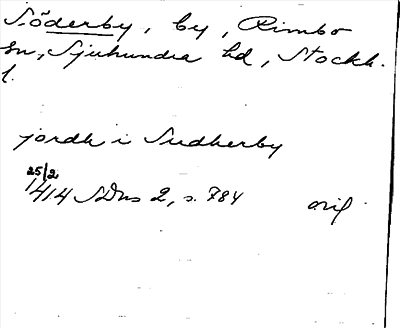 Söderby, by, Rimbo
sn, Sjuhundra hd, Stockh.
l.
jordh i Sudherby
25/2
1414 SDns 2, s. 784 orig.